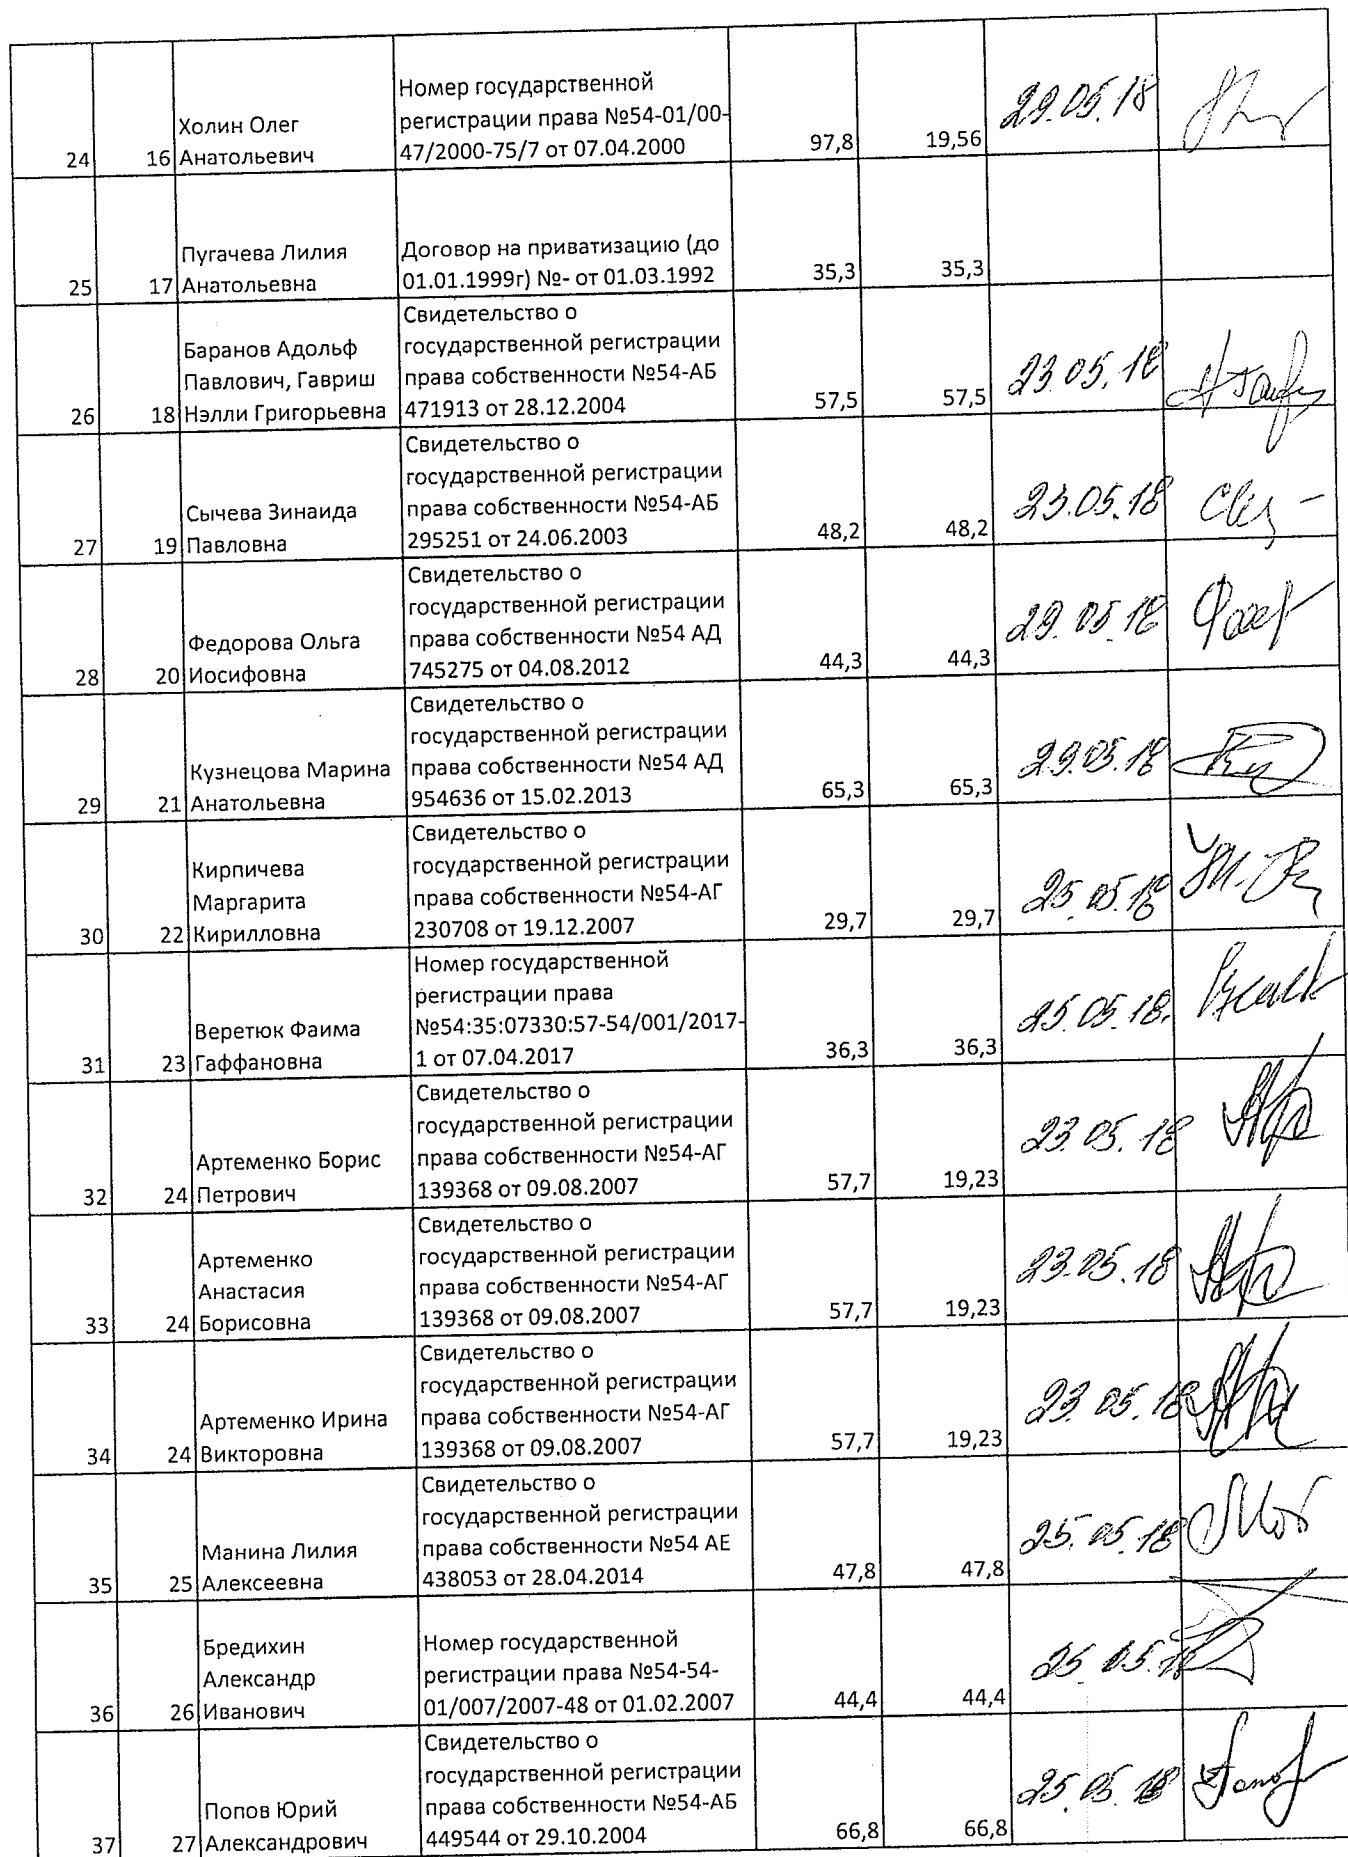 24 16 Холин Олег
Анатольевич
Номер государственной
регистрации права №54-01/00-
47/2000-75/7 от 07.04.2000
97,8 19,56 29.05.18
25 17 Пугачева Лилия
Анатольевна
Договор на приватизацию (до
01.01.1999г) №- от 01.03.1992
35,3 35,3
26 18 Баранов Адольф
Павлович, Гавриш
Нэлли Григорьевна
Свидетельство о
государственной регистрации
права собственности №54-АБ
471913 от 28.12.2004
57,5 57,5 23.05.18
27 19 Сычева Зинаида
Павловна
Свидетельство о
государственной регистрации
права собственности №54-АБ
295251 от 24.06.2003
48,2 48,2 23.05.18
28 20 Федорова Ольга
Иосифовна
Свидетельство о
государственной регистрации
права собственности №54 АД
745275 от 04.08.2012
44,3 44,3 29.05.18
29 21 Кузнецова Марина
Анатольевна
Свидетельство о
государственной регистрации
права собственности №54 АД
954636 от 15.02.2013
65,3 65,3 29.05.18
30 22 Кирпичева
Маргарита
Кирилловна
Свидетельство о
государственной регистрации
права собственности №54-АГ
230708 от 19.12.2007
29,7 29,7 25.05.18
31 23 Веретюк Фаима
Гаффановна
Номер государственной
регистрации права
№54:35:07330:57-54/001/2017-
1 от 07.04.2017
36,3 36,3 25.05.18.
32 24 Артеменко Борис
Петрович
Свидетельство о
государственной регистрации
права собственности №54-АГ
139368 от 09.08.2007
57,7 19,23 23.05.18
33 24 Артеменко
Анастасия
Борисовна
Свидетельство о
государственной регистрации
права собственности №54-АГ
139368 от 09.08.2007
57,7 19,23 23.05.18
34 24 Артеменко Ирина
Викторовна
Свидетельство о
государственной регистрации
права собственности №54-АГ
139368 от 09.08.2007
57,7 19,23 23.05.18
35 25 Манина Лилия
Алексеевна
Свидетельство о
государственной регистрации
права собственности №54 АЕ
438053 от 28.04.2014
47,8 47,8 25.05.18
36 26 Бредихин
Александр
Иванович
Номер государственной
регистрации права №54-54-
01/007/2007-48 от 01.02.2007
44,4 44,4 25.05.18
37 27 Попов Юрий
Александрович
Свидетельство о
государственной регистрации
права собственности №54-АБ
449544 от 29.10.2004
66,8 66,8 25.05.18